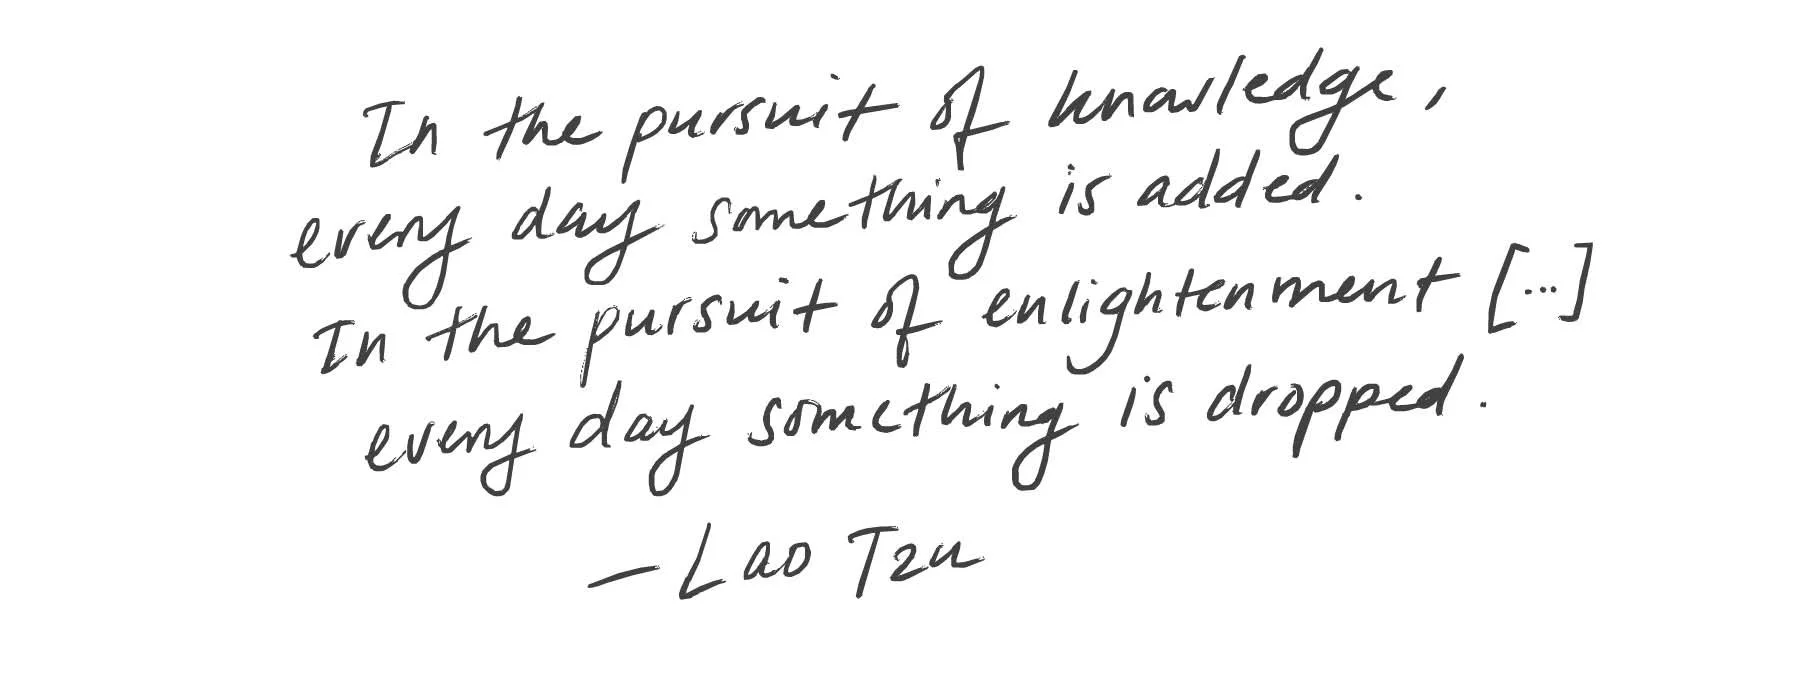 In the pursuit of knowledge,
every day something is added.
In the pursuit of enlightenment [...]
every day something is dropped.
— Lao Tzu